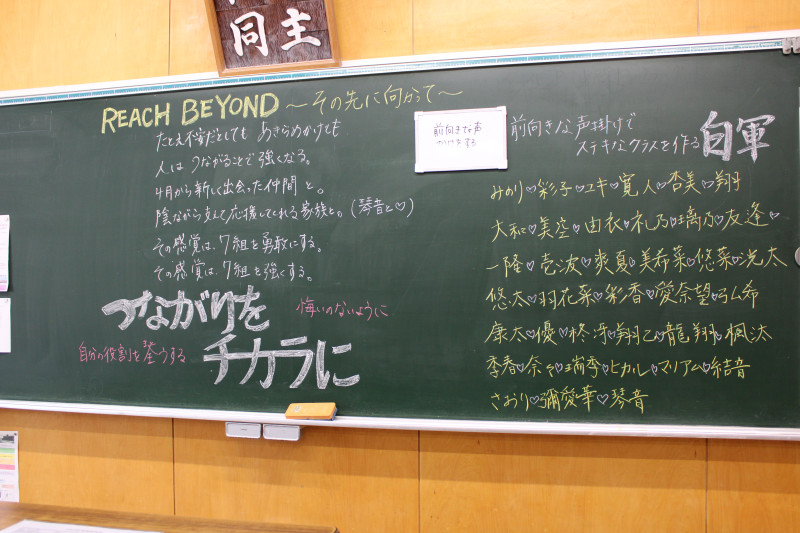 同主
REACH BEYOND ～その先に向かって～
たとえ不安だとしても あきらめかけても
人はつながることで強くなる。
4月から新しく出会った仲間と。
陰ながら支えて応援してくれる家族と。(琴音と♡)
その感覚は、7組を勇敢にする。
その感覚は、7組を強くする。
つながりを
チカラに
悔いのないように
自分の役割を全うする
前向きな声
かけをする
前向きな声掛けで
ステキなクラスを作る
白軍
みのり♡彩子♡ユキ♡寛人♡杏美♡翔
大和♡美空♡由衣♡礼乃♡璃乃♡友逢♡
一隆♡壱波♡爽夏♡美希菜♡悠菜♡洸太
悠太♡羽花菜♡彩香♡愛奈望♡弘希
康太♡優♡柊冴♡翔己♡龍翔♡楓汰
季春♡奈々♡瑞季♡ヒカル♡マリアム♡結音
さおり♡彌愛華♡琴音